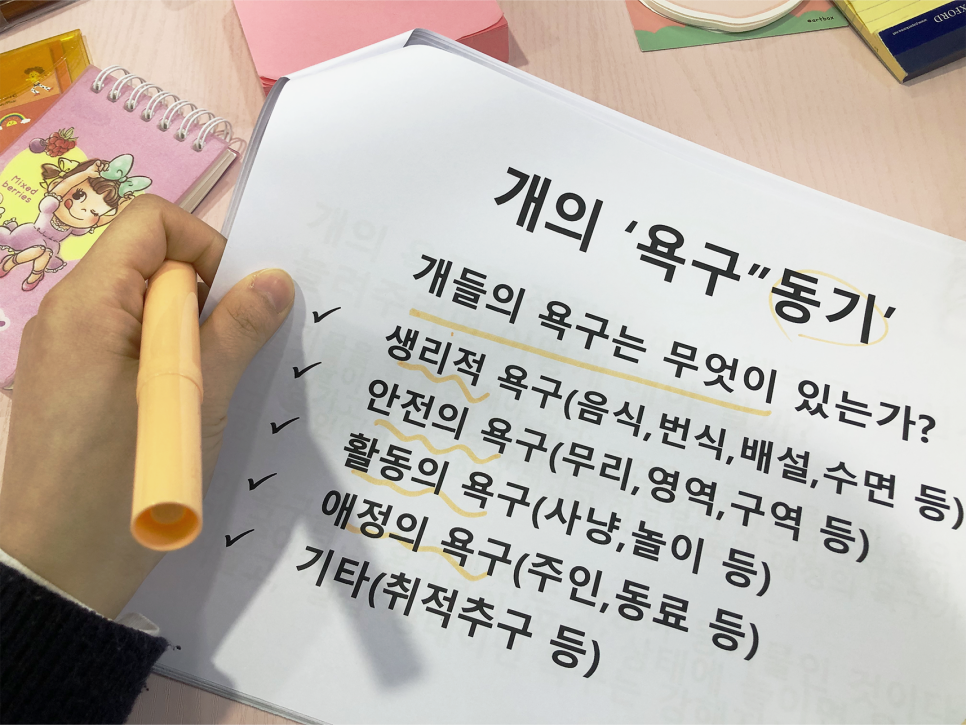 개의 ‘욕구”동기’
개들의 욕구는 무엇이 있는가?
✓ 생리적 욕구(음식,번식,배설,수면 등)
✓ 안전의 욕구(무리,영역,구역 등)
✓ 활동의 욕구(사냥,놀이 등)
✓ 애정의 욕구(주인,동료 등)
✓ 기타(취적추구 등)
Mixed
berries
artbox
OXFORD